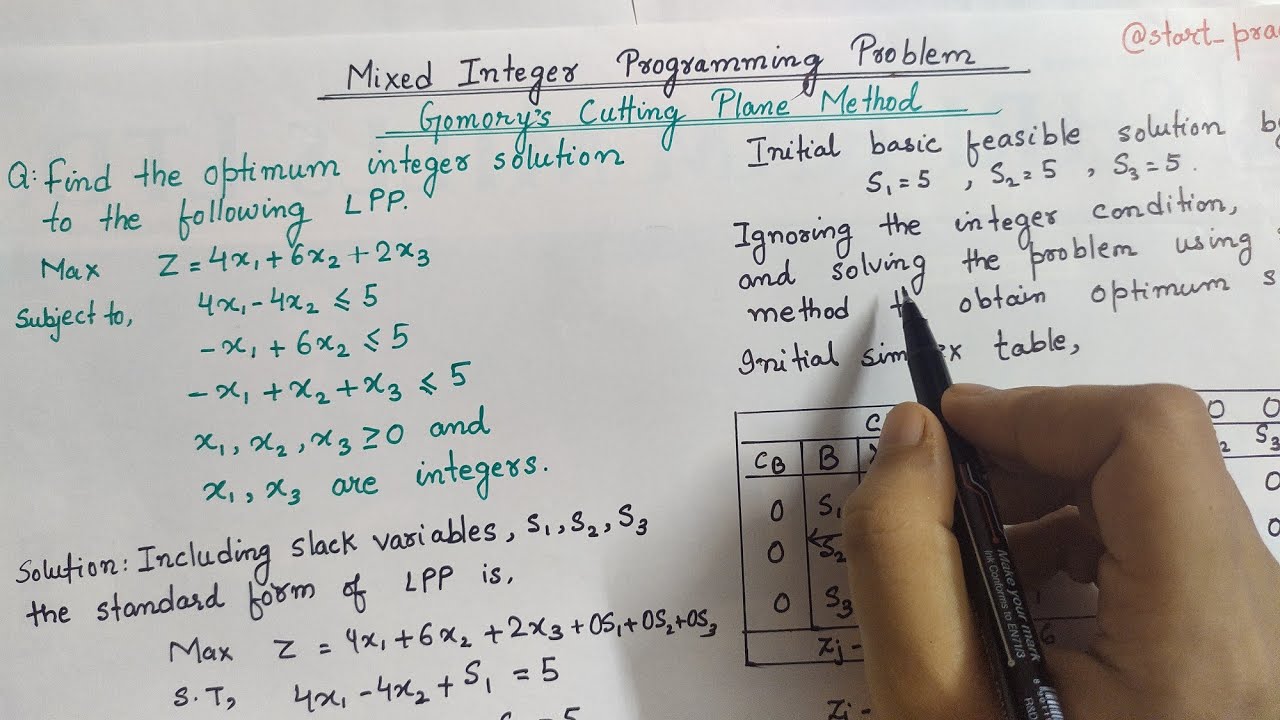 Mixed Integer Programming Problem
Gomory's Cutting Plane Method
@start_pra
Q: Find the optimum integer solution
to the following LPP.
Max Z = 4x₁ + 6x₂ + 2x₃
Subject to, 4x₁ - 4x₂ ≤ 5
-x₁ + 6x₂ ≤ 5
-x₁ + x₂ + x₃ ≤ 5
x₁, x₂, x₃ ≥ 0 and
x₁, x₃ are integers.
Solution: Including slack variables, S₁, S₂, S₃
the standard form of LPP is,
Max Z = 4x₁ + 6x₂ + 2x₃ + 0S₁ + 0S₂ + 0S₃
S.T, 4x₁ - 4x₂ + S₁ = 5
= 5
Initial basic feasible solution b
S₁ = 5 , S₂ = 5 , S₃ = 5.
Ignoring the integer condition,
and solving the problem using
method obtain optimum s
Initial table,
C 0 0
C_B B S₃
0 S₁ 0
0 S₂ 0
0 S₃
Zj -
Zj -